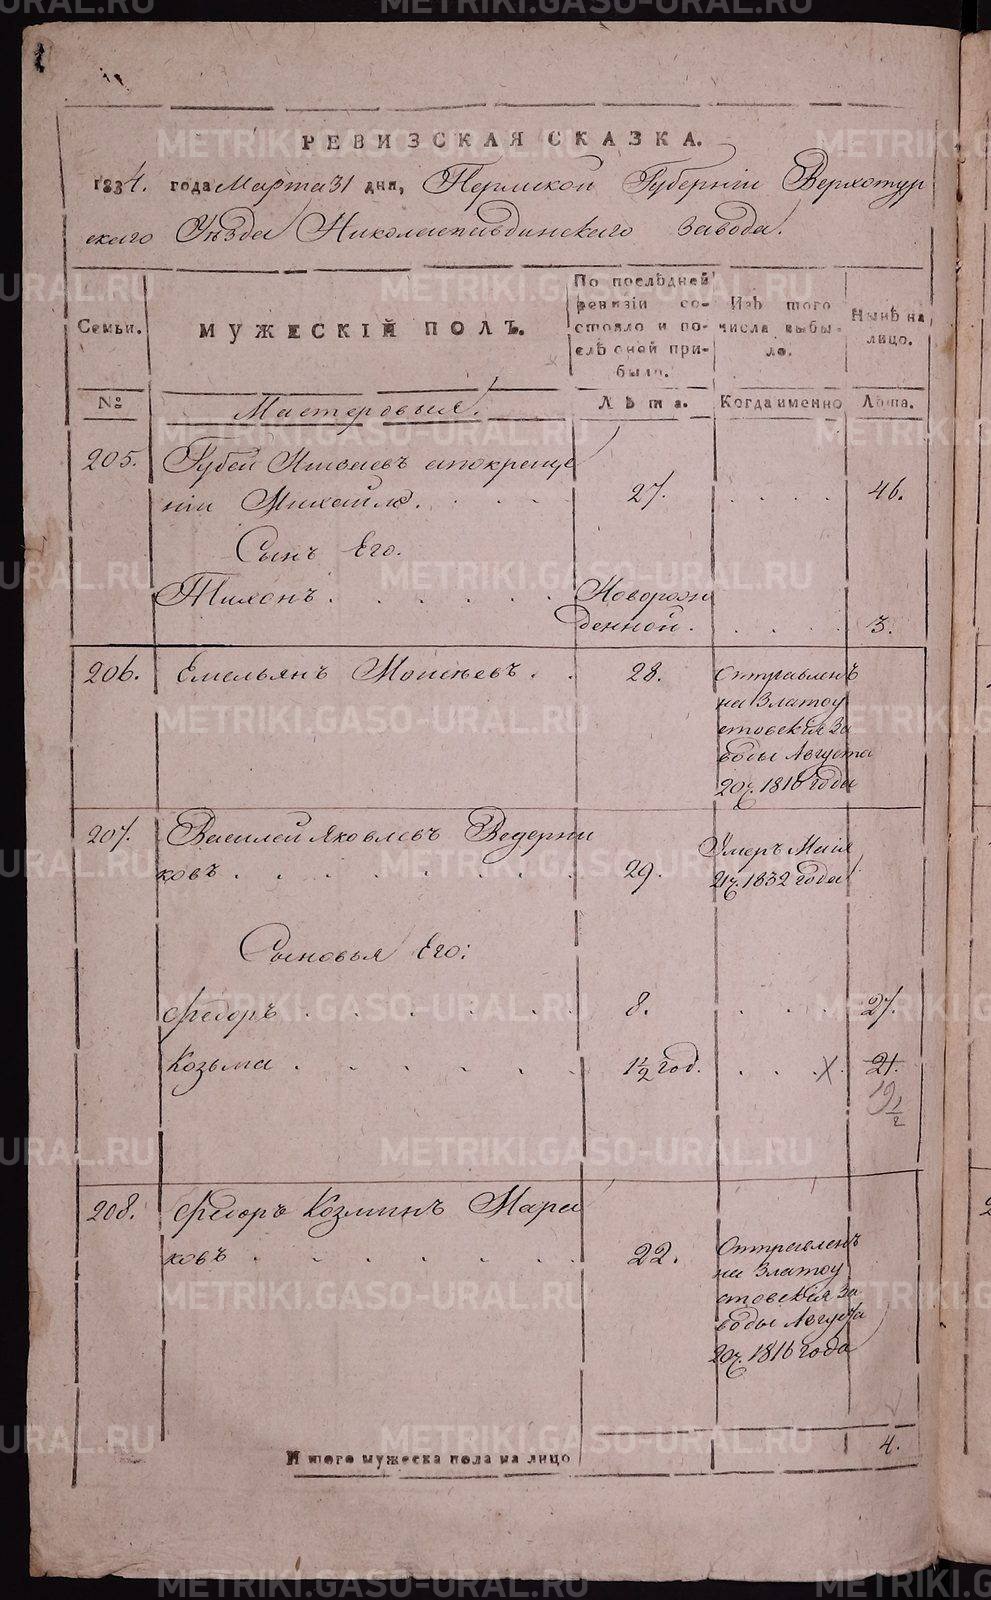 METRIKI.GASO-URAL.RU
РЕВИЗСКАЯ СКАЗКА.
1834. года Марта 31 дня, Пермской Губерніи Верхотур
скаго Уѣзда Николаепавдинскаго завода.
Семьи.
МУЖЕСКІЙ ПОЛЪ.
По послѣдней ревизіи состояло и послѣ оной прибыло.
Изъ того числа выбыло.
Нынѣ на лицо.
№
Мастеровыя.
Лѣта.
Когда именно
Лѣта.
205. Губей апокреще
ніи Михайло. 27. 46.
Сынъ Его.
Тихонъ. Новорож
денной. 3.
206. Емельянъ Моисѣевъ. 28. Отправленъ
на Златоу
стовскія За
воды Августа
20ч. 1816 года
207. Василей Яковлевъ Ведерни
ковъ. 29. Умеръ Маія
21ч. 1832 года
Сыновья Его:
Федоръ. 8. 27.
Козьма. 1½ год. X. 21.
19½
208. Федоръ Козминъ Мара
ковъ. 22. Отправленъ
на Златоу
стовскія За
воды Августа
20ч. 1816 года
Итого мужеска пола на лицо 4.